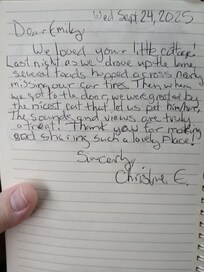 Wed Sept 24, 2025
Dear Emily,
We loved your little cottage!
Last night as we drove up the lane,
several toads hopped across nearly
missing our car tires. Then when
we got to the door, we were greeted by
the nicest cat that let us pet him/her.
The sounds and views are truly
a treat! Thank you for making
and sharing such a lovely place!
Sincerely,
Christine E.